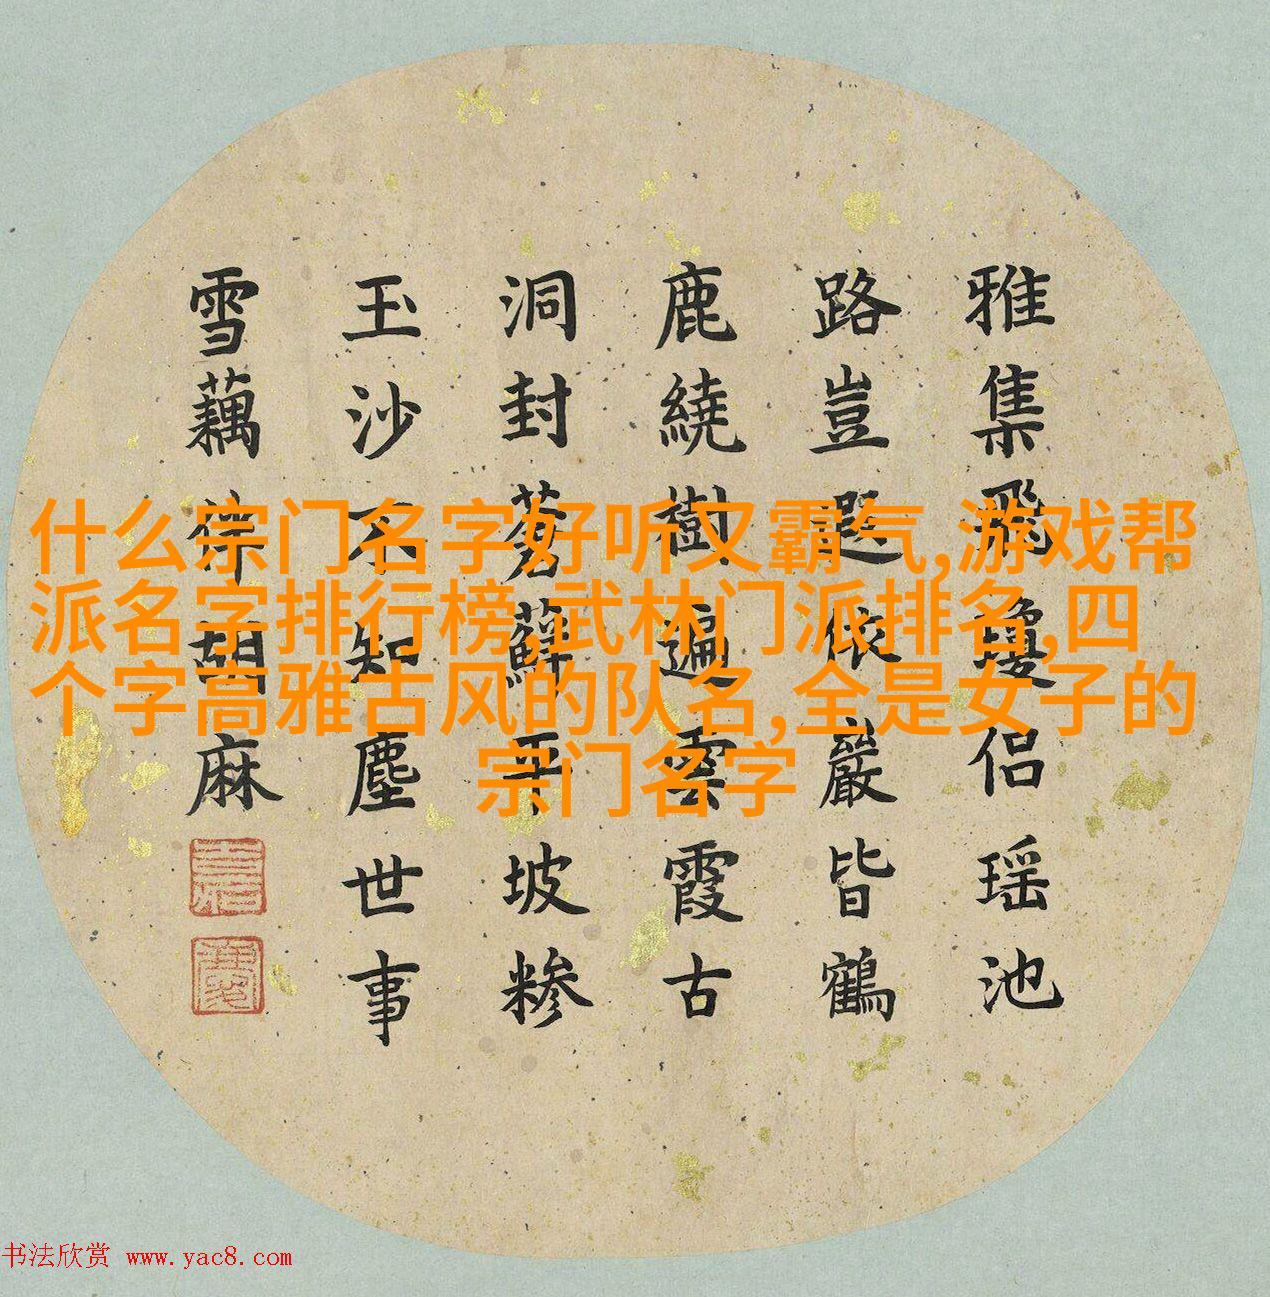 雅集飛瓊侶瑶池
路豈遐依巖皆鶴
鹿繞樹遍雲霞古
洞封蒼蘚平坡糁
玉沙不知塵世事
雪藕伴胡麻
什么宗门名字好听又霸气,游戏帮
派名字排行榜,武林门派排名,四
个字高雅古风的队名,全是女子的
宗门名字
书法欣赏 www.yac8.com